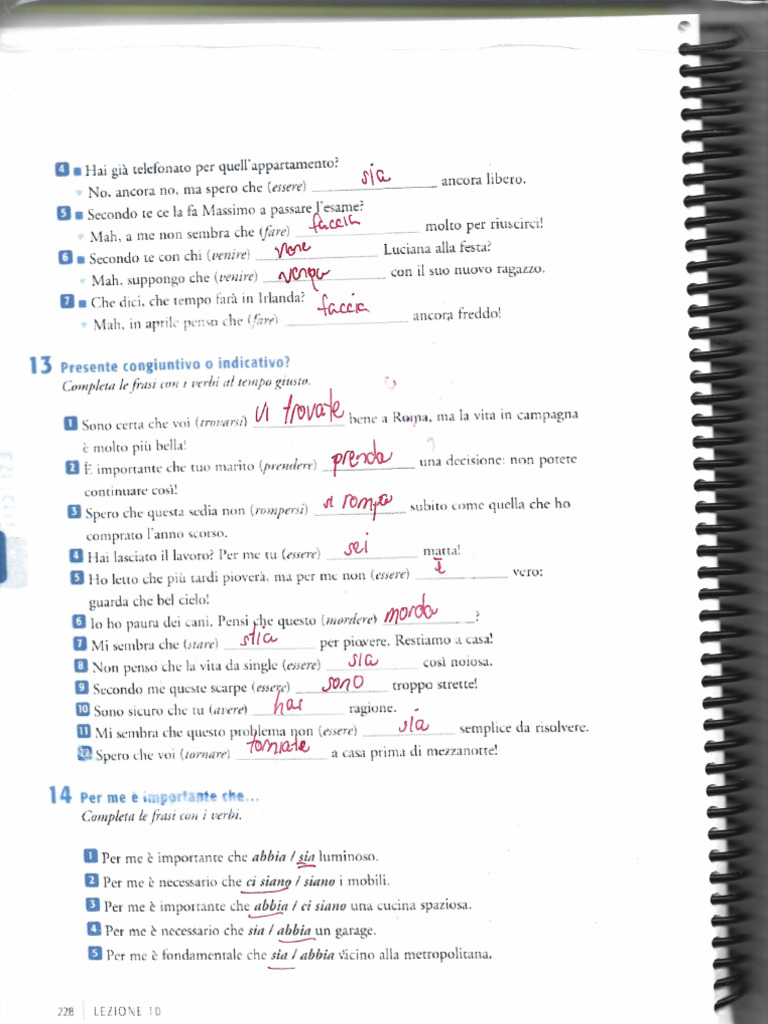 4 ■ Hai già telefonato per quell'appartamento?
▼ No, ancora no, ma spero che (essere) sia ancora libero.
5 ■ Secondo te ce la fa Massimo a passare l'esame?
▼ Mah, a me non sembra che (fare) faccia molto per riuscirci!
6 ■ Secondo te con chi (venire) viene Luciana alla festa?
▼ Mah, suppongo che (venire) venga con il suo nuovo ragazzo.
7 ■ Che dici, che tempo farà in Irlanda?
▼ Mah, in aprile penso che (fare) faccia ancora freddo!
13 Presente congiuntivo o indicativo?
Completa le frasi con i verbi al tempo giusto.
1 Sono certa che voi (trovarsi) vi trovate bene a Roma, ma la vita in campagna
è molto più bella!
2 È importante che tuo marito (prendere) prenda una decisione: non potete
continuare così!
3 Spero che questa sedia non (rompersi) si rompa subito come quella che ho
comprato l'anno scorso.
4 Hai lasciato il lavoro? Per me tu (essere) sei matta!
5 Ho letto che più tardi pioverà, ma per me non (essere) è vero:
guarda che bel cielo!
6 Io ho paura dei cani. Pensi che questo (mordere) morda ?
7 Mi sembra che (stare) stia per piovere. Restiamo a casa!
8 Non penso che la vita da single (essere) sia così noiosa.
9 Secondo me queste scarpe (essere) sono troppo strette!
10 Sono sicuro che tu (avere) hai ragione.
11 Mi sembra che questo problema non (essere) sia semplice da risolvere.
12 Spero che voi (tornare) torniate a casa prima di mezzanotte!
14 Per me è importante che...
Completa le frasi con i verbi.
1 Per me è importante che abbia / sia luminoso.
2 Per me è necessario che ci siano / siano i mobili.
3 Per me è importante che abbia / ci siano una cucina spaziosa.
4 Per me è necessario che sia / abbia un garage.
5 Per me è fondamentale che sia / abbia vicino alla metropolitana.
228 | LEZIONE 10